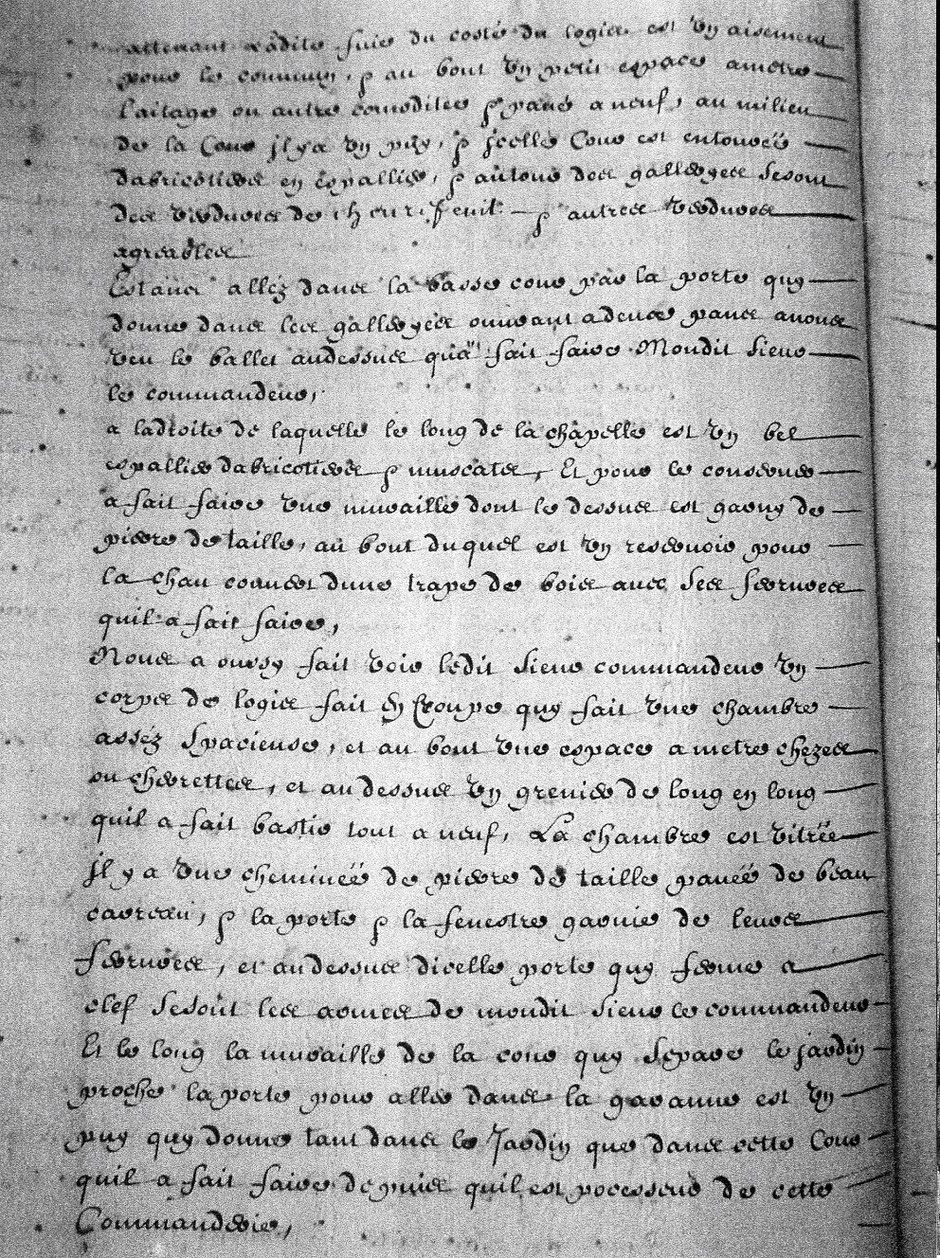 attenant ladite suie du costé du logice est vn aisement
pour le commun, & au bout vn petit espace a metre
laitage ou autre comoditee & pavé a neuf, au milieu
de la Cour il y a vn puy, & jcelle Cour est entourëe
dabricotiere en espallier, & autour des galleryes se sont
des verdures de cheurefeuil & autres verdures
agreables
Estans allez dans la basse cour par la porte quy
donne dans les galleryes ouurant a deux pans auons
veu le ballet audessus qua fait faire Mondit sieur
le commandeur,
a ladroite de laquelle le long de la chapelle est vn bel
espallier dabricotiers & muscats, Et pour le conserver
a fait faire vne muraille dont le dessus est garny de
pierre de taille, au bout duquel est vn reseruoir pour
la chau couuert dune trape de bois auec ses ferrures
quil a fait faire,
Nous a oussy fait voir ledit sieur commandeur vn
corps de logis fait en croupe quy fait vne chambre
assez spacieuse, et au bout vne espace a metre chezes
ou cheurettes, et au dessus vn grenier de long en long
quil a fait bastir tout a neuf, La chambre est vitrëe
Il y a vne cheminëe de pierre de taille pavëe de beau
carreau, & la porte & la fenestre garnie de leurs
ferrures, et au dessus dicelle porte quy ferme a
clef se sont les armes de mondit sieur le commandeur
Et le long la muraille de la cour quy separe le jardin
proche la porte pour aller dans la garanne est vn
puy quy donne tant dans le Jardin que dans cette Cour
quil a fait faire depuis quil est pocesseur de cette
Commanderie,